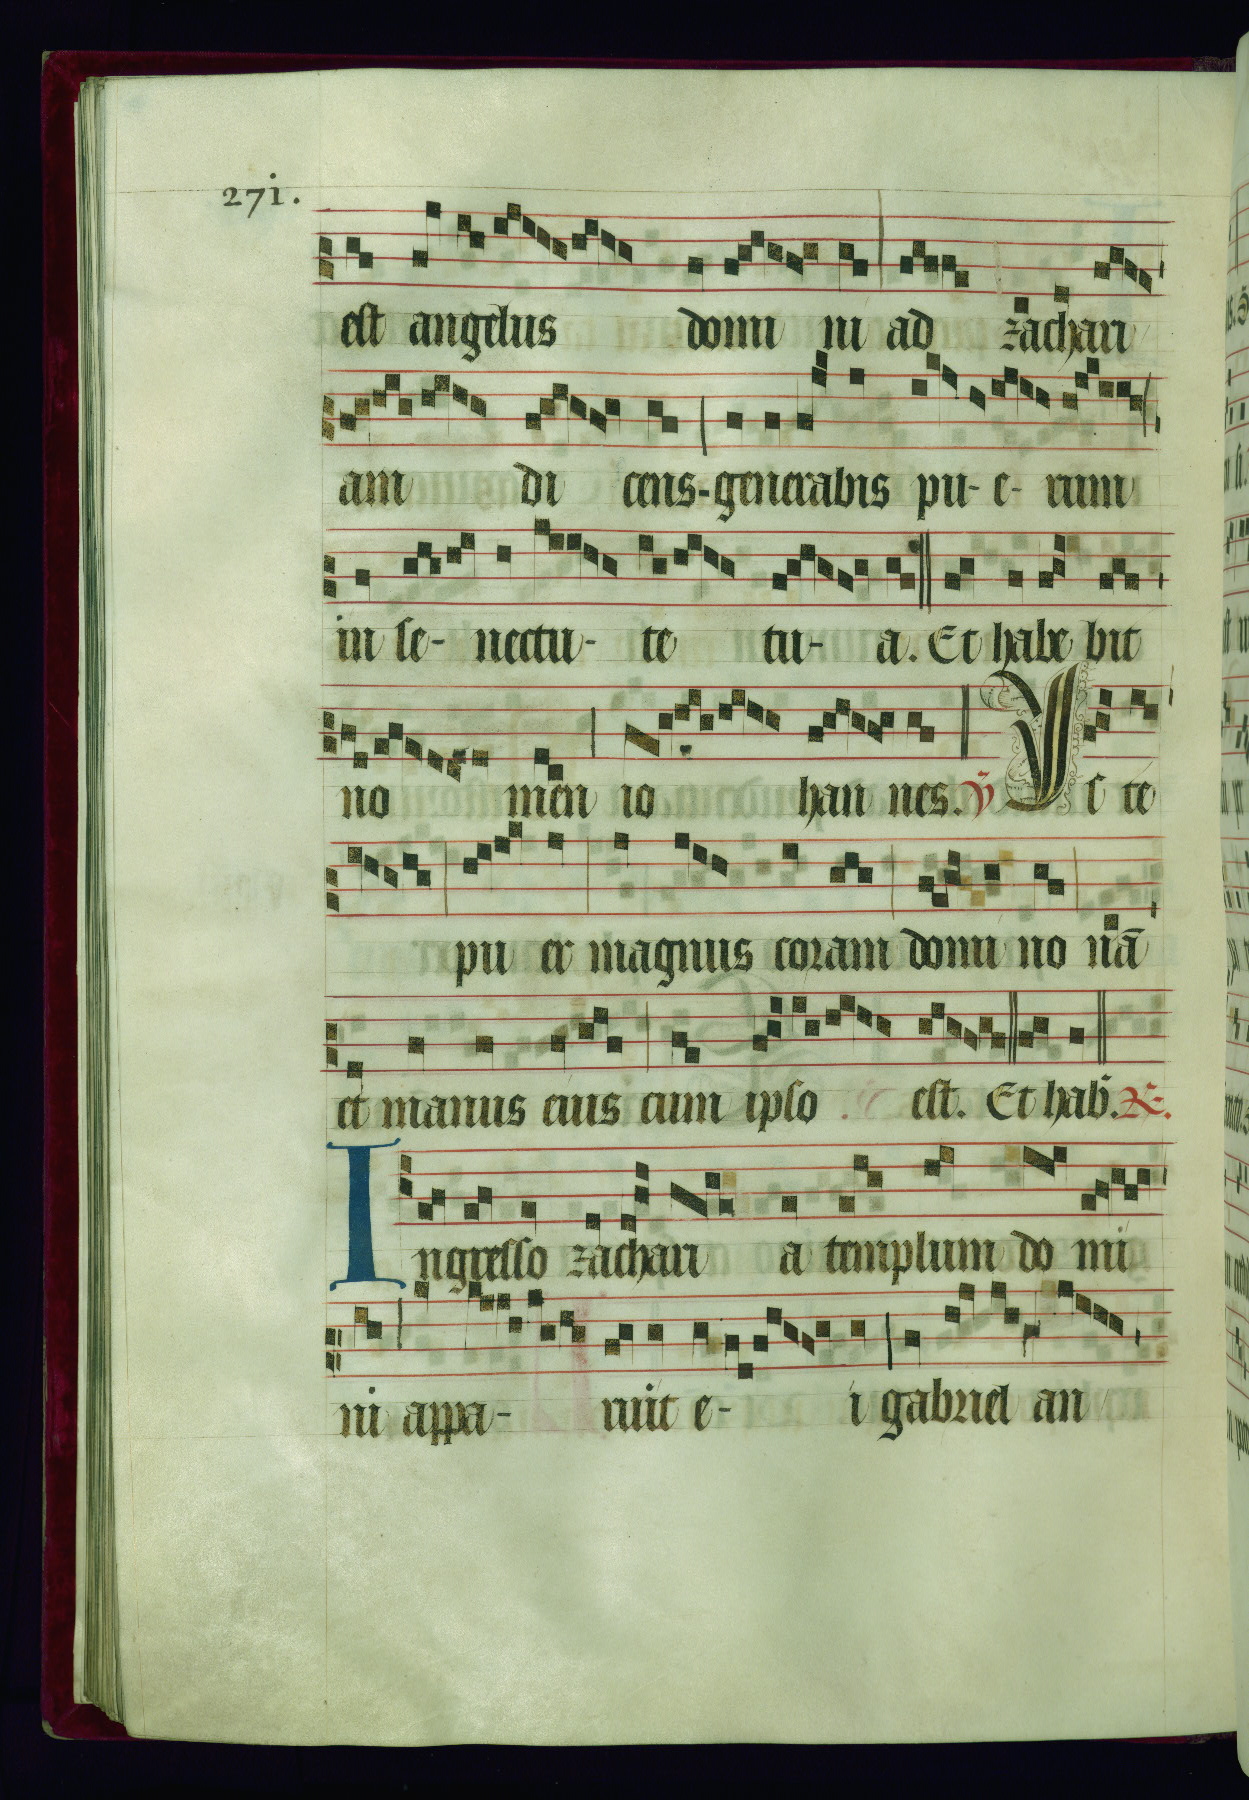 271.
est angelus domi ni ad zachari
am di cens-generabis pu- e- rum
in se- nectu- te tu- a. Et habe bit
no men io han nes. ℣ Is te
pu er magnus coram domi no nā
et manus eius cum ipso est. Et hab̄. ℟.
Ingresso zachari a templum do mi
ni appa- ruit e- i gabriel an